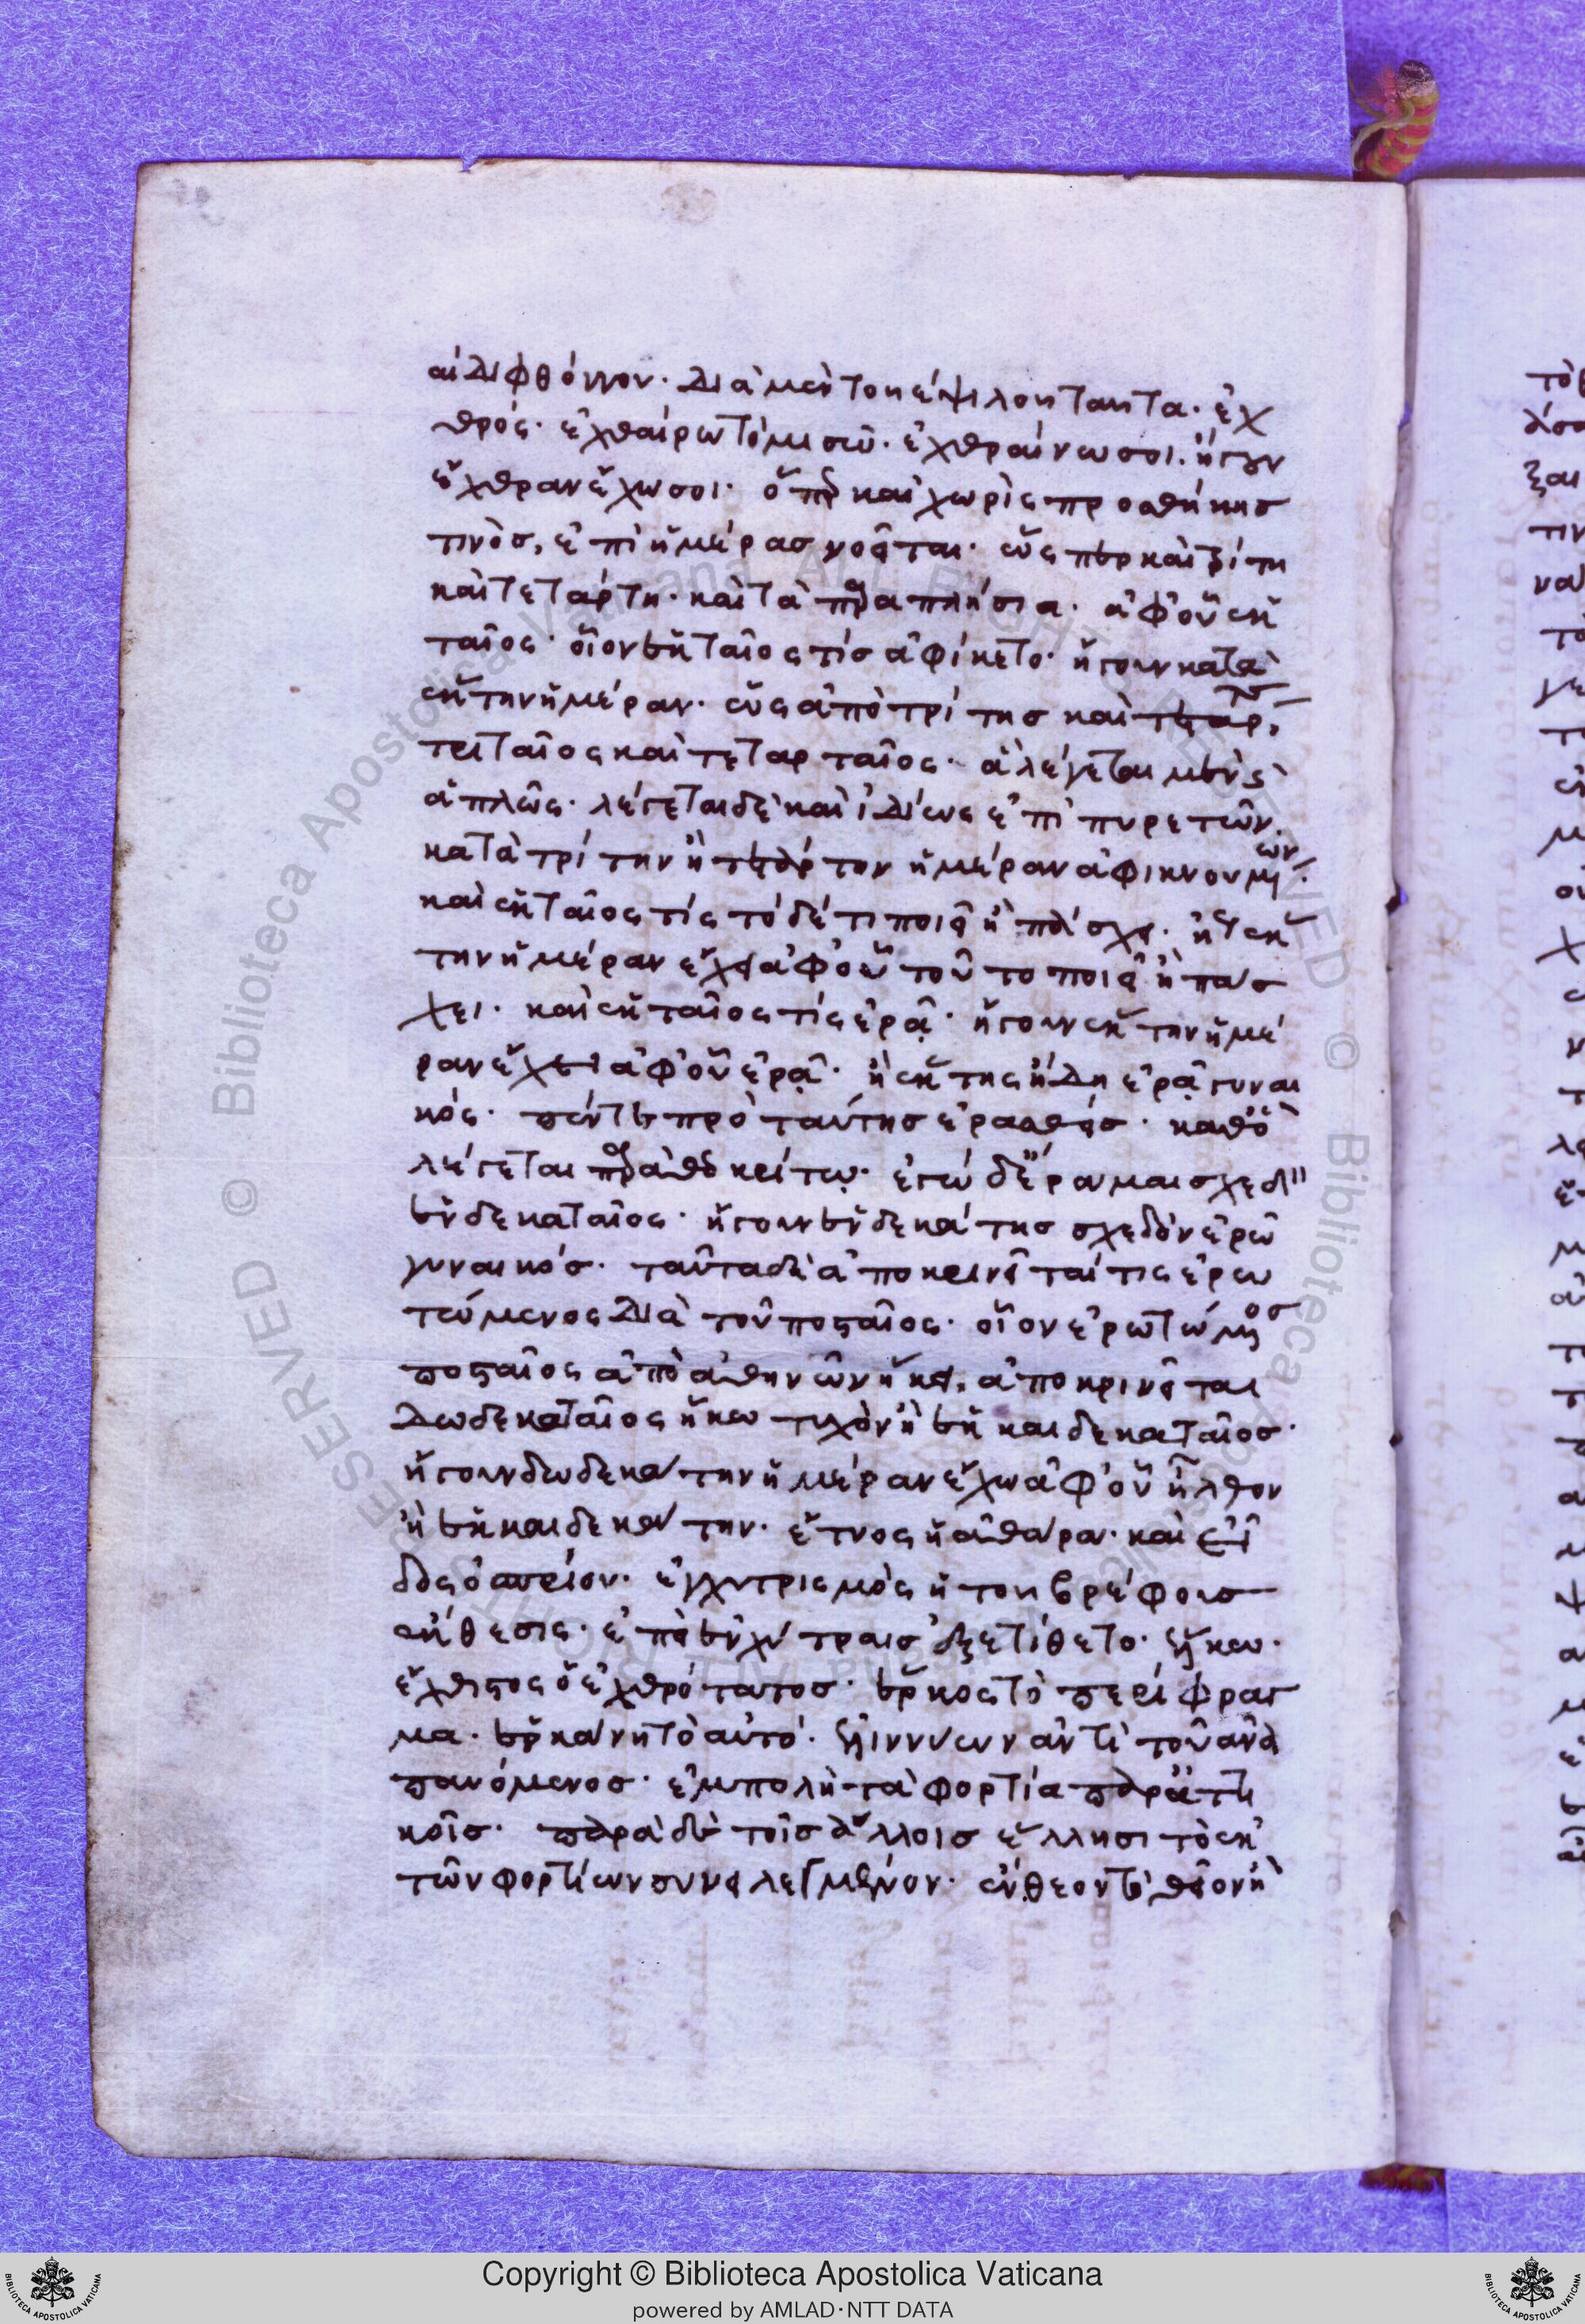 αι διφθόγγου. διὰ μὲν τοῦ ε ψιλοῦ ταῦτα. ἐχ
θρός. ἐχθαίρω τὸ μισῶ. ἐχθραίνω σοι. ἤγουν
ἔχθραν ἔχω σοι. καὶ χωρὶς προσθήκης
τινὸς, ἐπὶ ἡμέρας νοεῖται. ὥσπερ καὶ τρίτη
καὶ τετάρτη. καὶ τὰ παραπλήσια. ἀφ' οὗ ἑκ
ταῖος. οἷον ἑκταῖος τίς ἀφίκετο. ἤγουν κατὰ
ἕκτην ἡμέραν. ὡς ἀπὸ τρίτης καὶ τετάρτης
τριταῖος καὶ τεταρταῖος. ἃ λέγεται μὲν
ἁπλῶς. λέγεται δὲ καὶ ἰδίως ἐπὶ πυρετῶν.
κατὰ τρίτην ἢ τετάρτην ἡμέραν ἀφικνουμένων.
καὶ ἑκταῖος τίς τόδέ τι ποιεῖ ἢ πάσχει. ἕκ
την ἡμέραν ἔχει ἀφ' οὗ τοῦτο ποιεῖ ἢ πάσ
χει. καὶ ἑκταῖος τίς ἐρᾷ. ἤγουν ἕκτην ἡμέ
ραν ἔχει ἀφ' οὗ ἐρᾷ. ἢ ἕκτης ἤδη ἐρᾷ γυναι
κός. πέντε πρὸ ταύτης ἐρασθείς. καθὸ
λέγεται παρὰ θεοκρίτω. ἐγὼ δ' ἔραμαι σχεδὸν
ἑνδεκαταῖος. ἤγουν ἑνδεκάτης σχεδὸν ἐρῶ
γυναικός. ταῦτα δὲ ἀποκρινεῖταί τις ἐρω
τώμενος διὰ τοῦ ποσταῖος. οἷον ἐρωτώμενος
ποσταῖος ἀπὸ ἀθηνῶν ἥκει, ἀποκρινεῖται
δωδεκαταῖος ἥκω τυχὸν ἢ ἑκκαιδεκαταῖος.
ἤγουν δωδεκάτην ἡμέραν ἔχω ἀφ' οὗ ἦλθον
ἢ ἑκκαιδεκάτην. ἔτνος ἡ ἀθάρα. καὶ
ἐγχυτρισμὸς ἡ τοῦ βρέφους
ἔκθεσις. ἐπεὶ ἐν χύτραις ἐξετίθετο.
ἔχθιστος ὁ ἐχθρότατος. ἕρκος τὸ περίφραγ
μα. ἑρκάνη τὸ αὐτό. ἐλιννύων ἀντὶ τοῦ ἀνα
παυόμενος. ἐμπολὴ τὰ φορτία παρὰ ἀττι
κοῖς. παρὰ δὲ τοῖς ἄλλοις ἕλλησι τὸ ἐκ
τῶν φορτίων συνειλεγμένον.